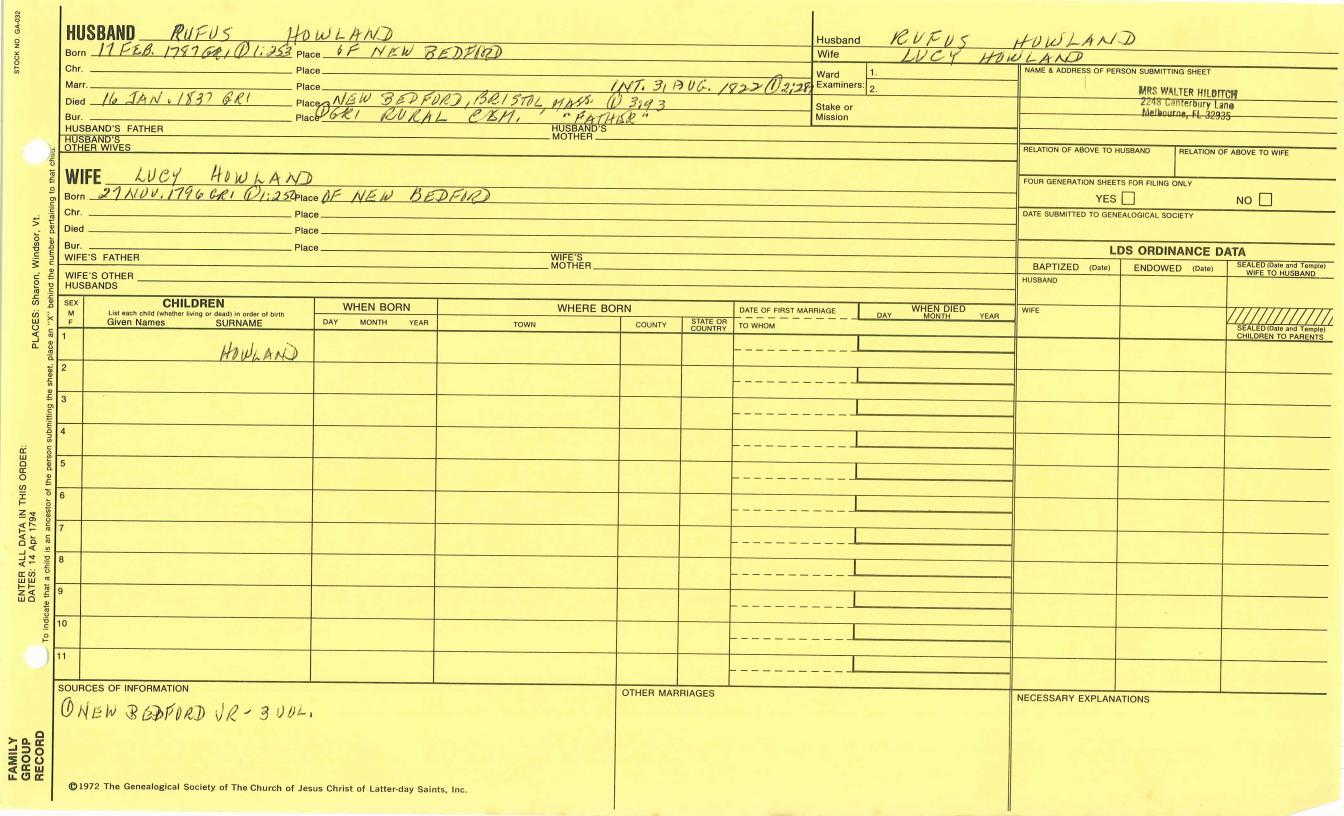 STOCK NO. GA-032
HUSBAND RUFUS HOWLAND
Born 17 FEB. 1787 GR1 ① 1:253 Place OF NEW BEDFORD
Chr. Place
Marr. Place INT. 31 AUG. 1822 ① 2:28
Died 16 JAN. 1837 GR1 Place NEW BEDFORD, BRISTOL, MASS. ① 3:93
Bur. Place ① GR1 RURAL CEM. "FATHER"
HUSBAND'S FATHER HUSBAND'S MOTHER
HUSBAND'S OTHER WIVES
WIFE LUCY HOWLAND
Born 27 NOV. 1796 GR1 ① 1:250 Place OF NEW BEDFORD
Chr. Place
Died Place
Bur. Place
WIFE'S FATHER WIFE'S MOTHER
WIFE'S OTHER HUSBANDS
Husband RUFUS HOWLAND
Wife LUCY HOWLAND
Ward Examiners: 1.
2.
Stake or Mission
NAME & ADDRESS OF PERSON SUBMITTING SHEET
MRS WALTER HILDITCH
2248 Canterbury Lane
Melbourne, FL 32935
RELATION OF ABOVE TO HUSBAND RELATION OF ABOVE TO WIFE
FOUR GENERATION SHEETS FOR FILING ONLY
YES NO
DATE SUBMITTED TO GENEALOGICAL SOCIETY
LDS ORDINANCE DATA
BAPTIZED (Date) ENDOWED (Date) SEALED (Date and Temple) WIFE TO HUSBAND
HUSBAND
WIFE
SEALED (Date and Temple) CHILDREN TO PARENTS
SEX M F
CHILDREN
List each child (whether living or dead) in order of birth
Given Names SURNAME
WHEN BORN
DAY MONTH YEAR
WHERE BORN
TOWN COUNTY STATE OR COUNTRY
DATE OF FIRST MARRIAGE
TO WHOM
WHEN DIED
DAY MONTH YEAR
1 HOWLAND
2
3
4
5
6
7
8
9
10
11
SOURCES OF INFORMATION
① NEW BEDFORD VR - 3 VOL.
OTHER MARRIAGES
NECESSARY EXPLANATIONS
©1972 The Genealogical Society of The Church of Jesus Christ of Latter-day Saints, Inc.
FAMILY GROUP RECORD
ENTER ALL DATA IN THIS ORDER:
DATES: 14 Apr 1794 PLACES: Sharon, Windsor, Vt.
To indicate that a child is an ancestor of the person submitting the sheet, place an "X" behind the number pertaining to that child.